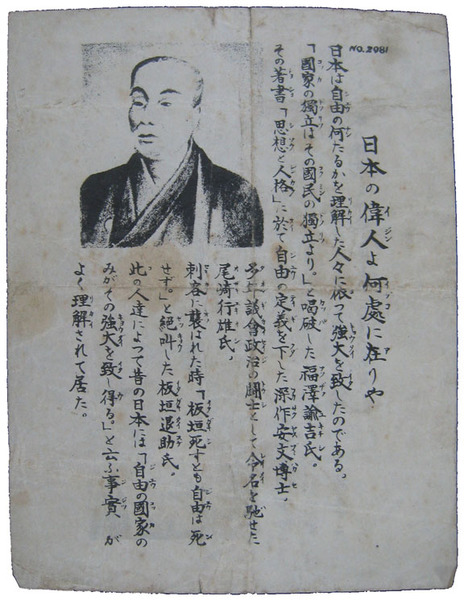 NO.2981
日本の偉人よ何處に在りや
日本は自由の何たるかを理解した人々に依つて強大を致したのである。
「國家の獨立はその國民の獨立より。」と喝破した福澤諭吉氏。
その著書「思想と人格」に於て自由の定義を下した深作安文博士。
多年議會政治の鬪士として令名を馳せた
尾崎行雄氏。
刺客に襲はれた時「板垣死すとも自由は死
せず。」と絶叫した板垣退助氏。
此の人達によつて昔の日本には「自由の國家の
みがその強大を致し得る。」と云ふ事實、が
よく理解されて居た。